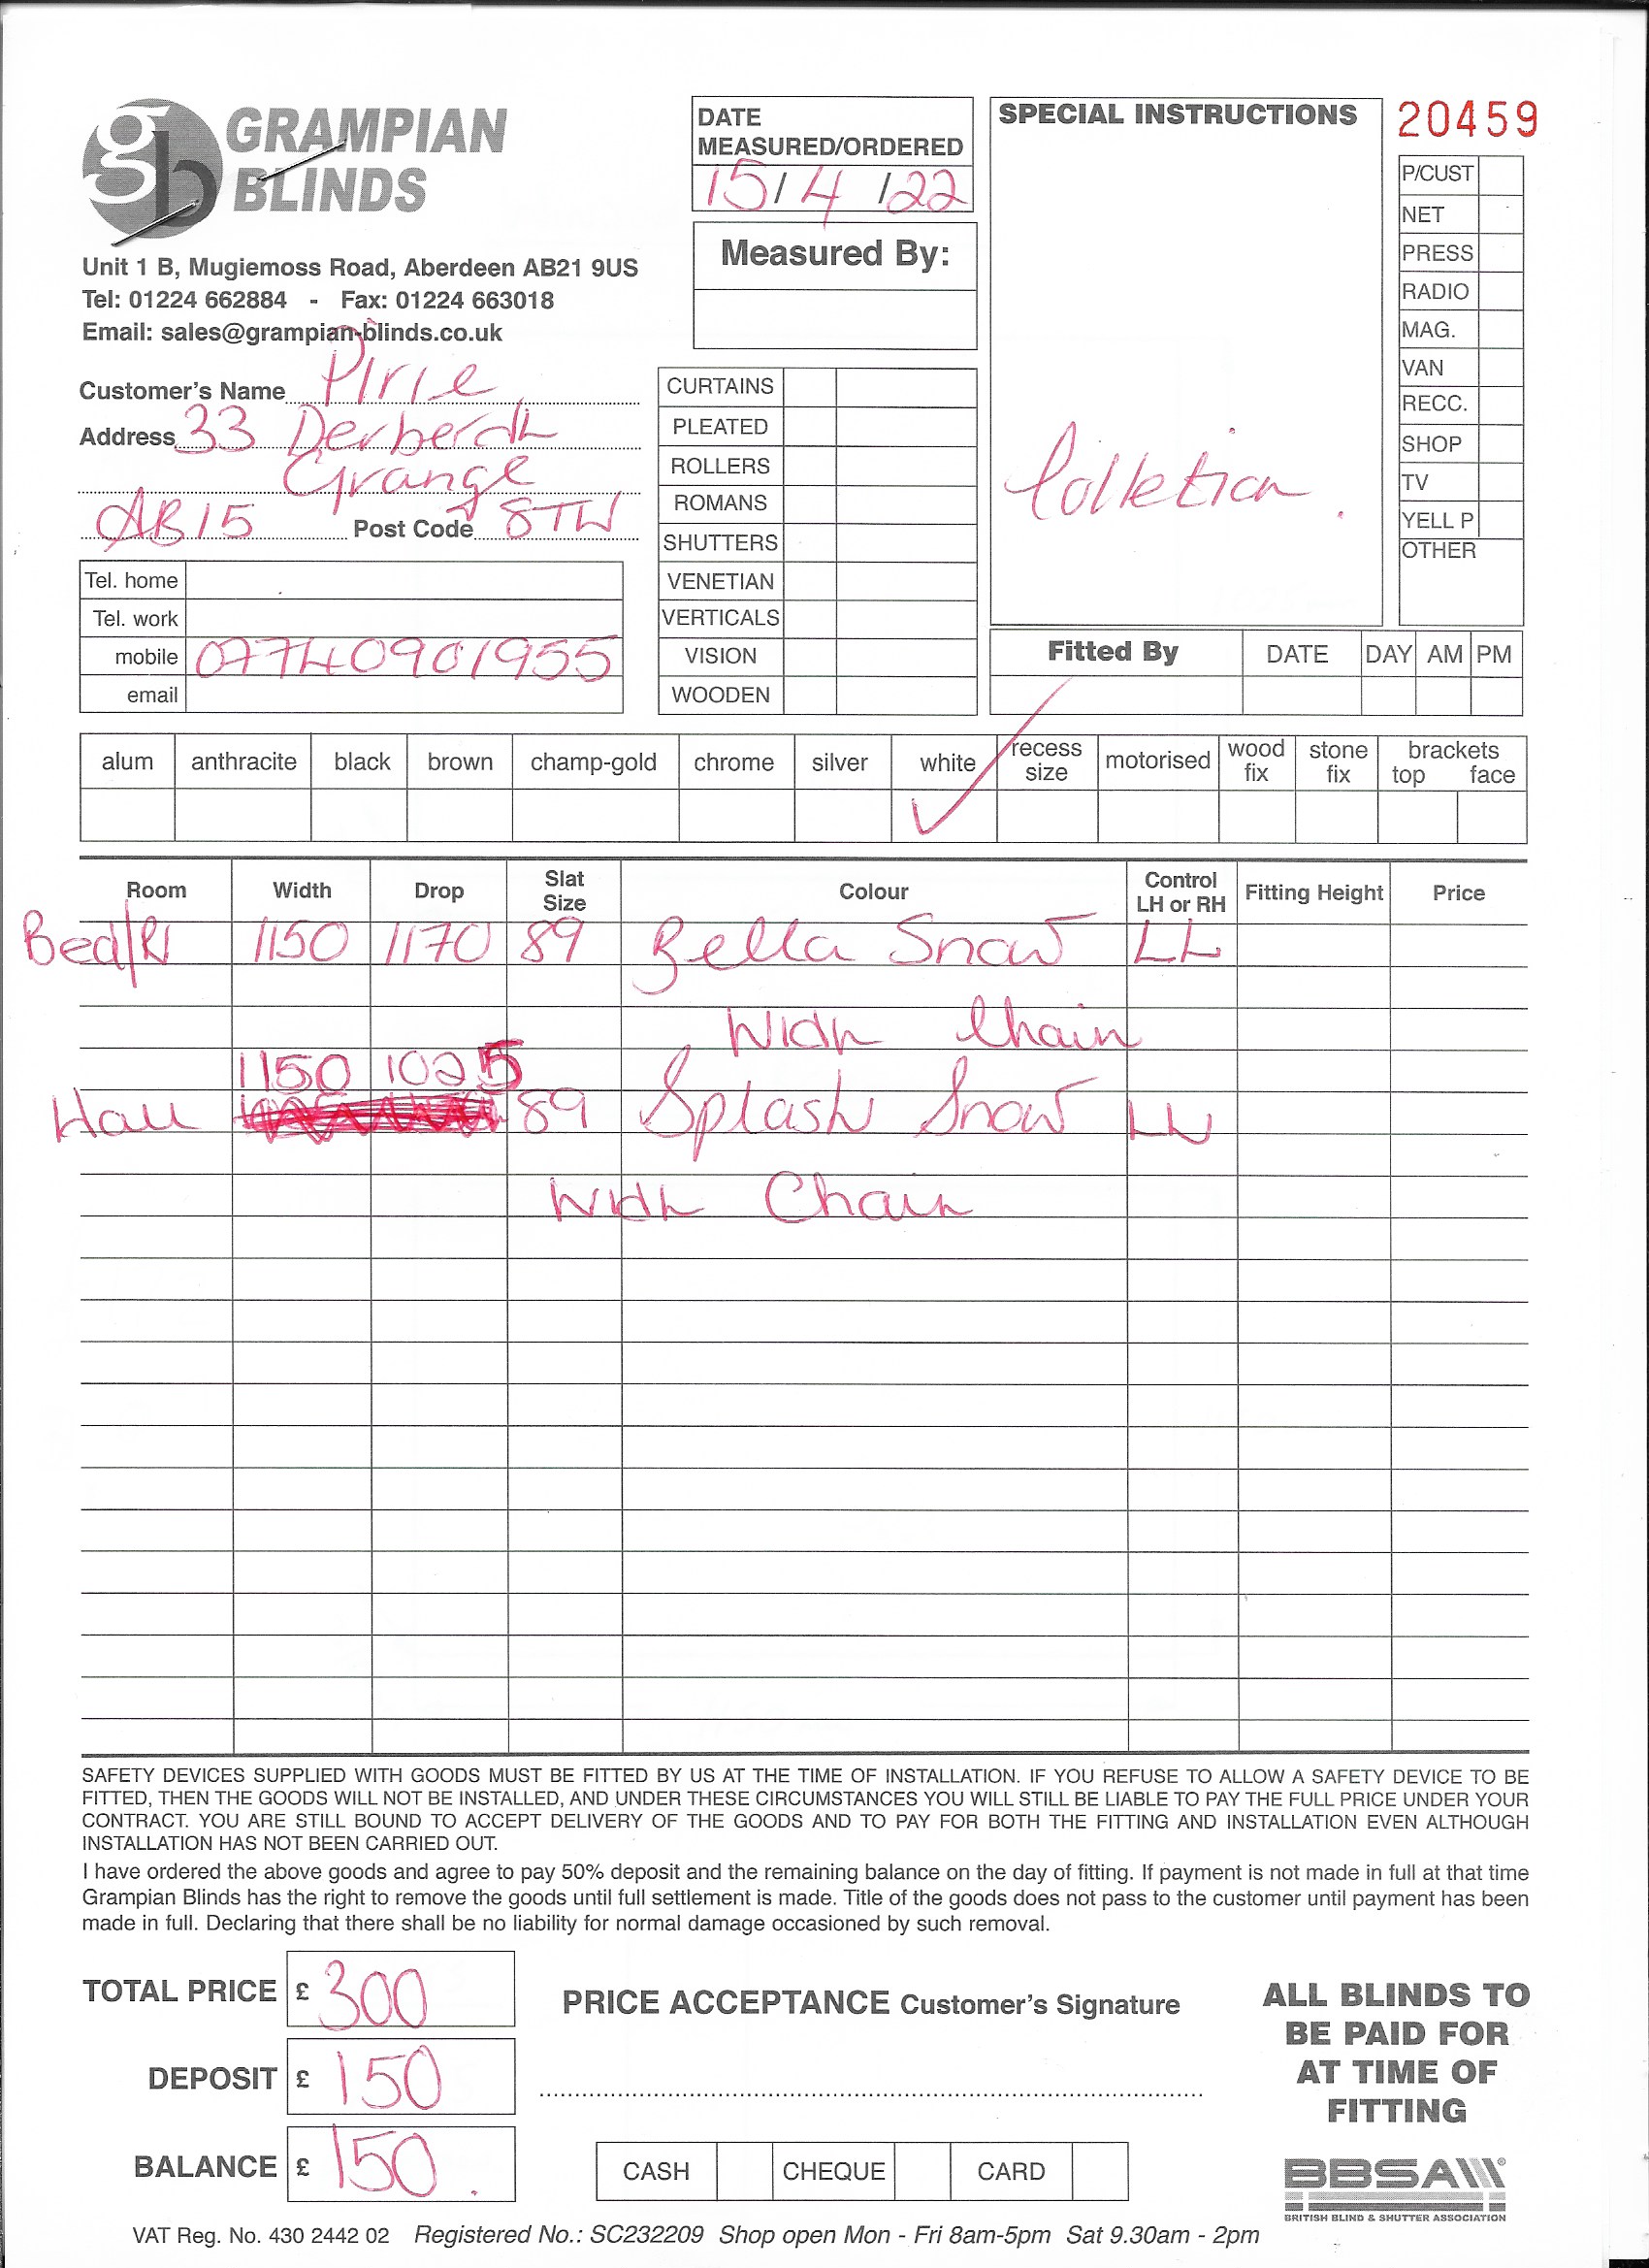 GRAMPIAN
BLINDS
Unit 1 B, Mugiemoss Road, Aberdeen AB21 9US
Tel: 01224 662884 - Fax: 01224 663018
Email: sales@grampian-blinds.co.uk
Customer's Name Pirie
Address 33 Derbeth
Grange
AB15 Post Code 8TW
Tel. home
Tel. work
mobile 07740901955
email
DATE
MEASURED/ORDERED
15/4/22
Measured By:
CURTAINS
PLEATED
ROLLERS
ROMANS
SHUTTERS
VENETIAN
VERTICALS
VISION
WOODEN
SPECIAL INSTRUCTIONS
Colletion.
20459
P/CUST
NET
PRESS
RADIO
MAG.
VAN
RECC.
SHOP
TV
YELL P
OTHER
Fitted By DATE DAY AM PM
alum anthracite black brown champ-gold chrome silver white recess size motorised wood fix stone fix brackets top face
Room Width Drop Slat Size Colour Control LH or RH Fitting Height Price
Bed/R 1150 1170 89 Bella Snow LL
With Chain
1150 1025
Hall 89 Splash Snow LL
With Chain
SAFETY DEVICES SUPPLIED WITH GOODS MUST BE FITTED BY US AT THE TIME OF INSTALLATION. IF YOU REFUSE TO ALLOW A SAFETY DEVICE TO BE
FITTED, THEN THE GOODS WILL NOT BE INSTALLED, AND UNDER THESE CIRCUMSTANCES YOU WILL STILL BE LIABLE TO PAY THE FULL PRICE UNDER YOUR
CONTRACT. YOU ARE STILL BOUND TO ACCEPT DELIVERY OF THE GOODS AND TO PAY FOR BOTH THE FITTING AND INSTALLATION EVEN ALTHOUGH
INSTALLATION HAS NOT BEEN CARRIED OUT.
I have ordered the above goods and agree to pay 50% deposit and the remaining balance on the day of fitting. If payment is not made in full at that time
Grampian Blinds has the right to remove the goods until full settlement is made. Title of the goods does not pass to the customer until payment has been
made in full. Declaring that there shall be no liability for normal damage occasioned by such removal.
TOTAL PRICE £ 300
DEPOSIT £ 150
BALANCE £ 150.
PRICE ACCEPTANCE Customer's Signature
CASH CHEQUE CARD
ALL BLINDS TO
BE PAID FOR
AT TIME OF
FITTING
BBSA
BRITISH BLIND & SHUTTER ASSOCIATION
VAT Reg. No. 430 2442 02 Registered No.: SC232209 Shop open Mon - Fri 8am-5pm Sat 9.30am - 2pm